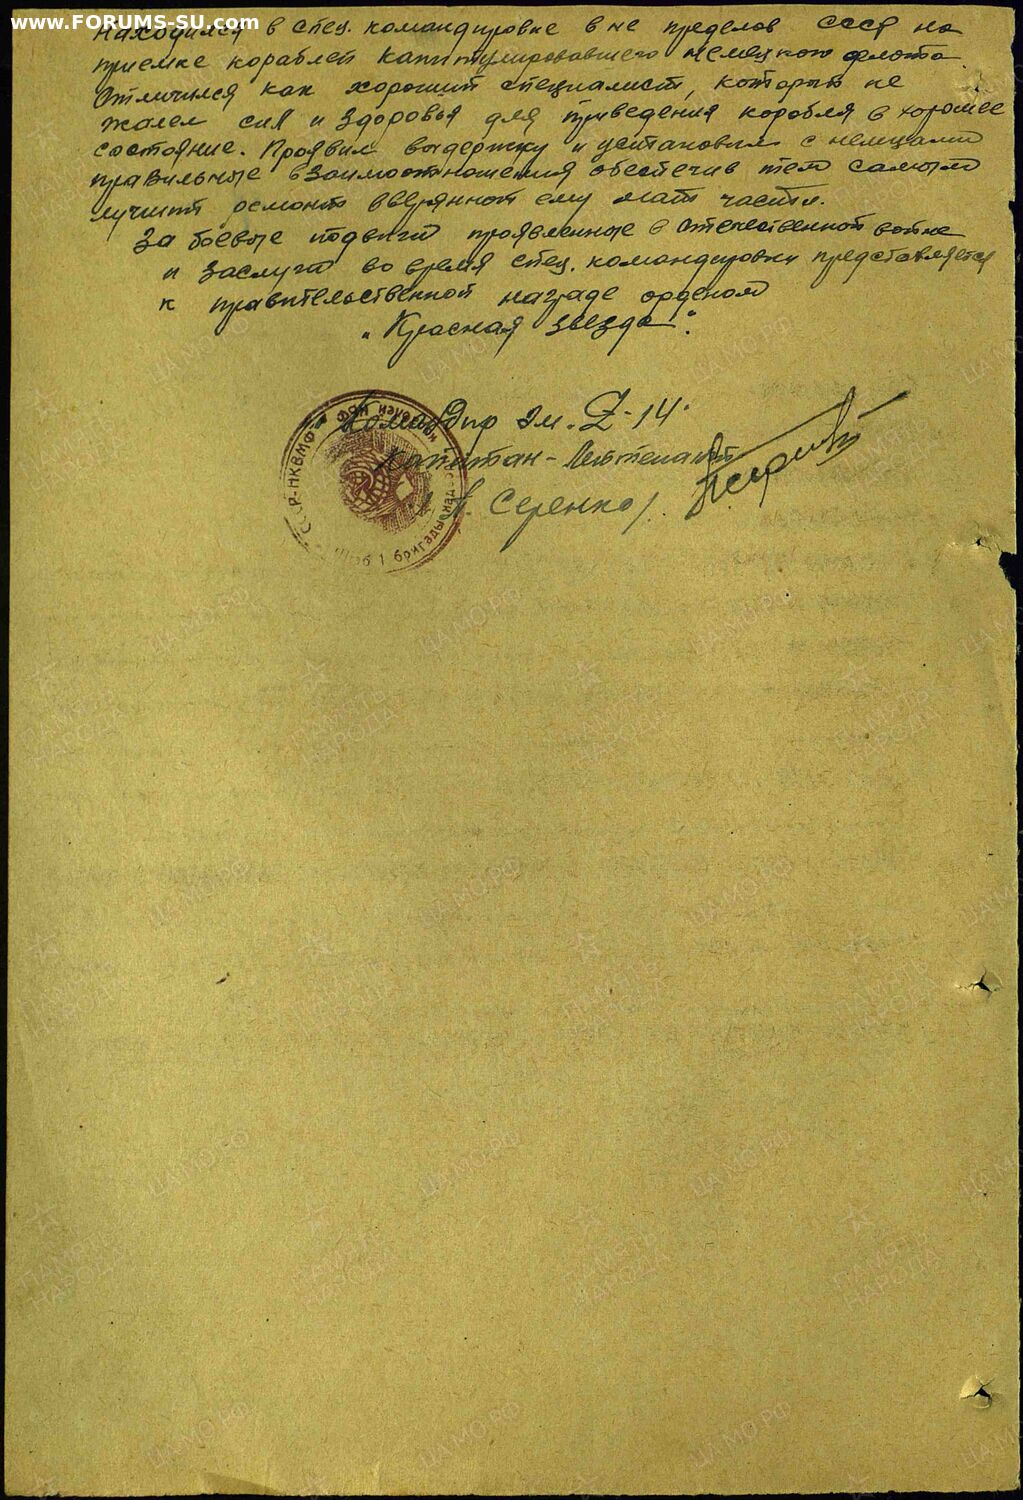 www.FORUMS-SU.com
Находился в спец. командировке в не пределов СССР на
приемке кораблей капитулировавшего немецкого флота.
Отличился как хороший специалист, который не
жалел сил и здоровья для приведения корабля в хорошее
состояние. Проявил выдержку и установил с немцами
правильные взаимоотношения обеспечив тем самым
лучший ремонт вверянной ему мат части.
За боевые подвиги проявленные в отечественной войне
и заслуги во время спец. командировки представляется
к правительственной награде орденом
„Красная звезда".
Командир эм. Z-14
Капитан-Лейтенант
Серенко/.
СССР-НКВМФ
1 бригады
ЦА МО РФ
ПАМЯТЬ НАРОДА